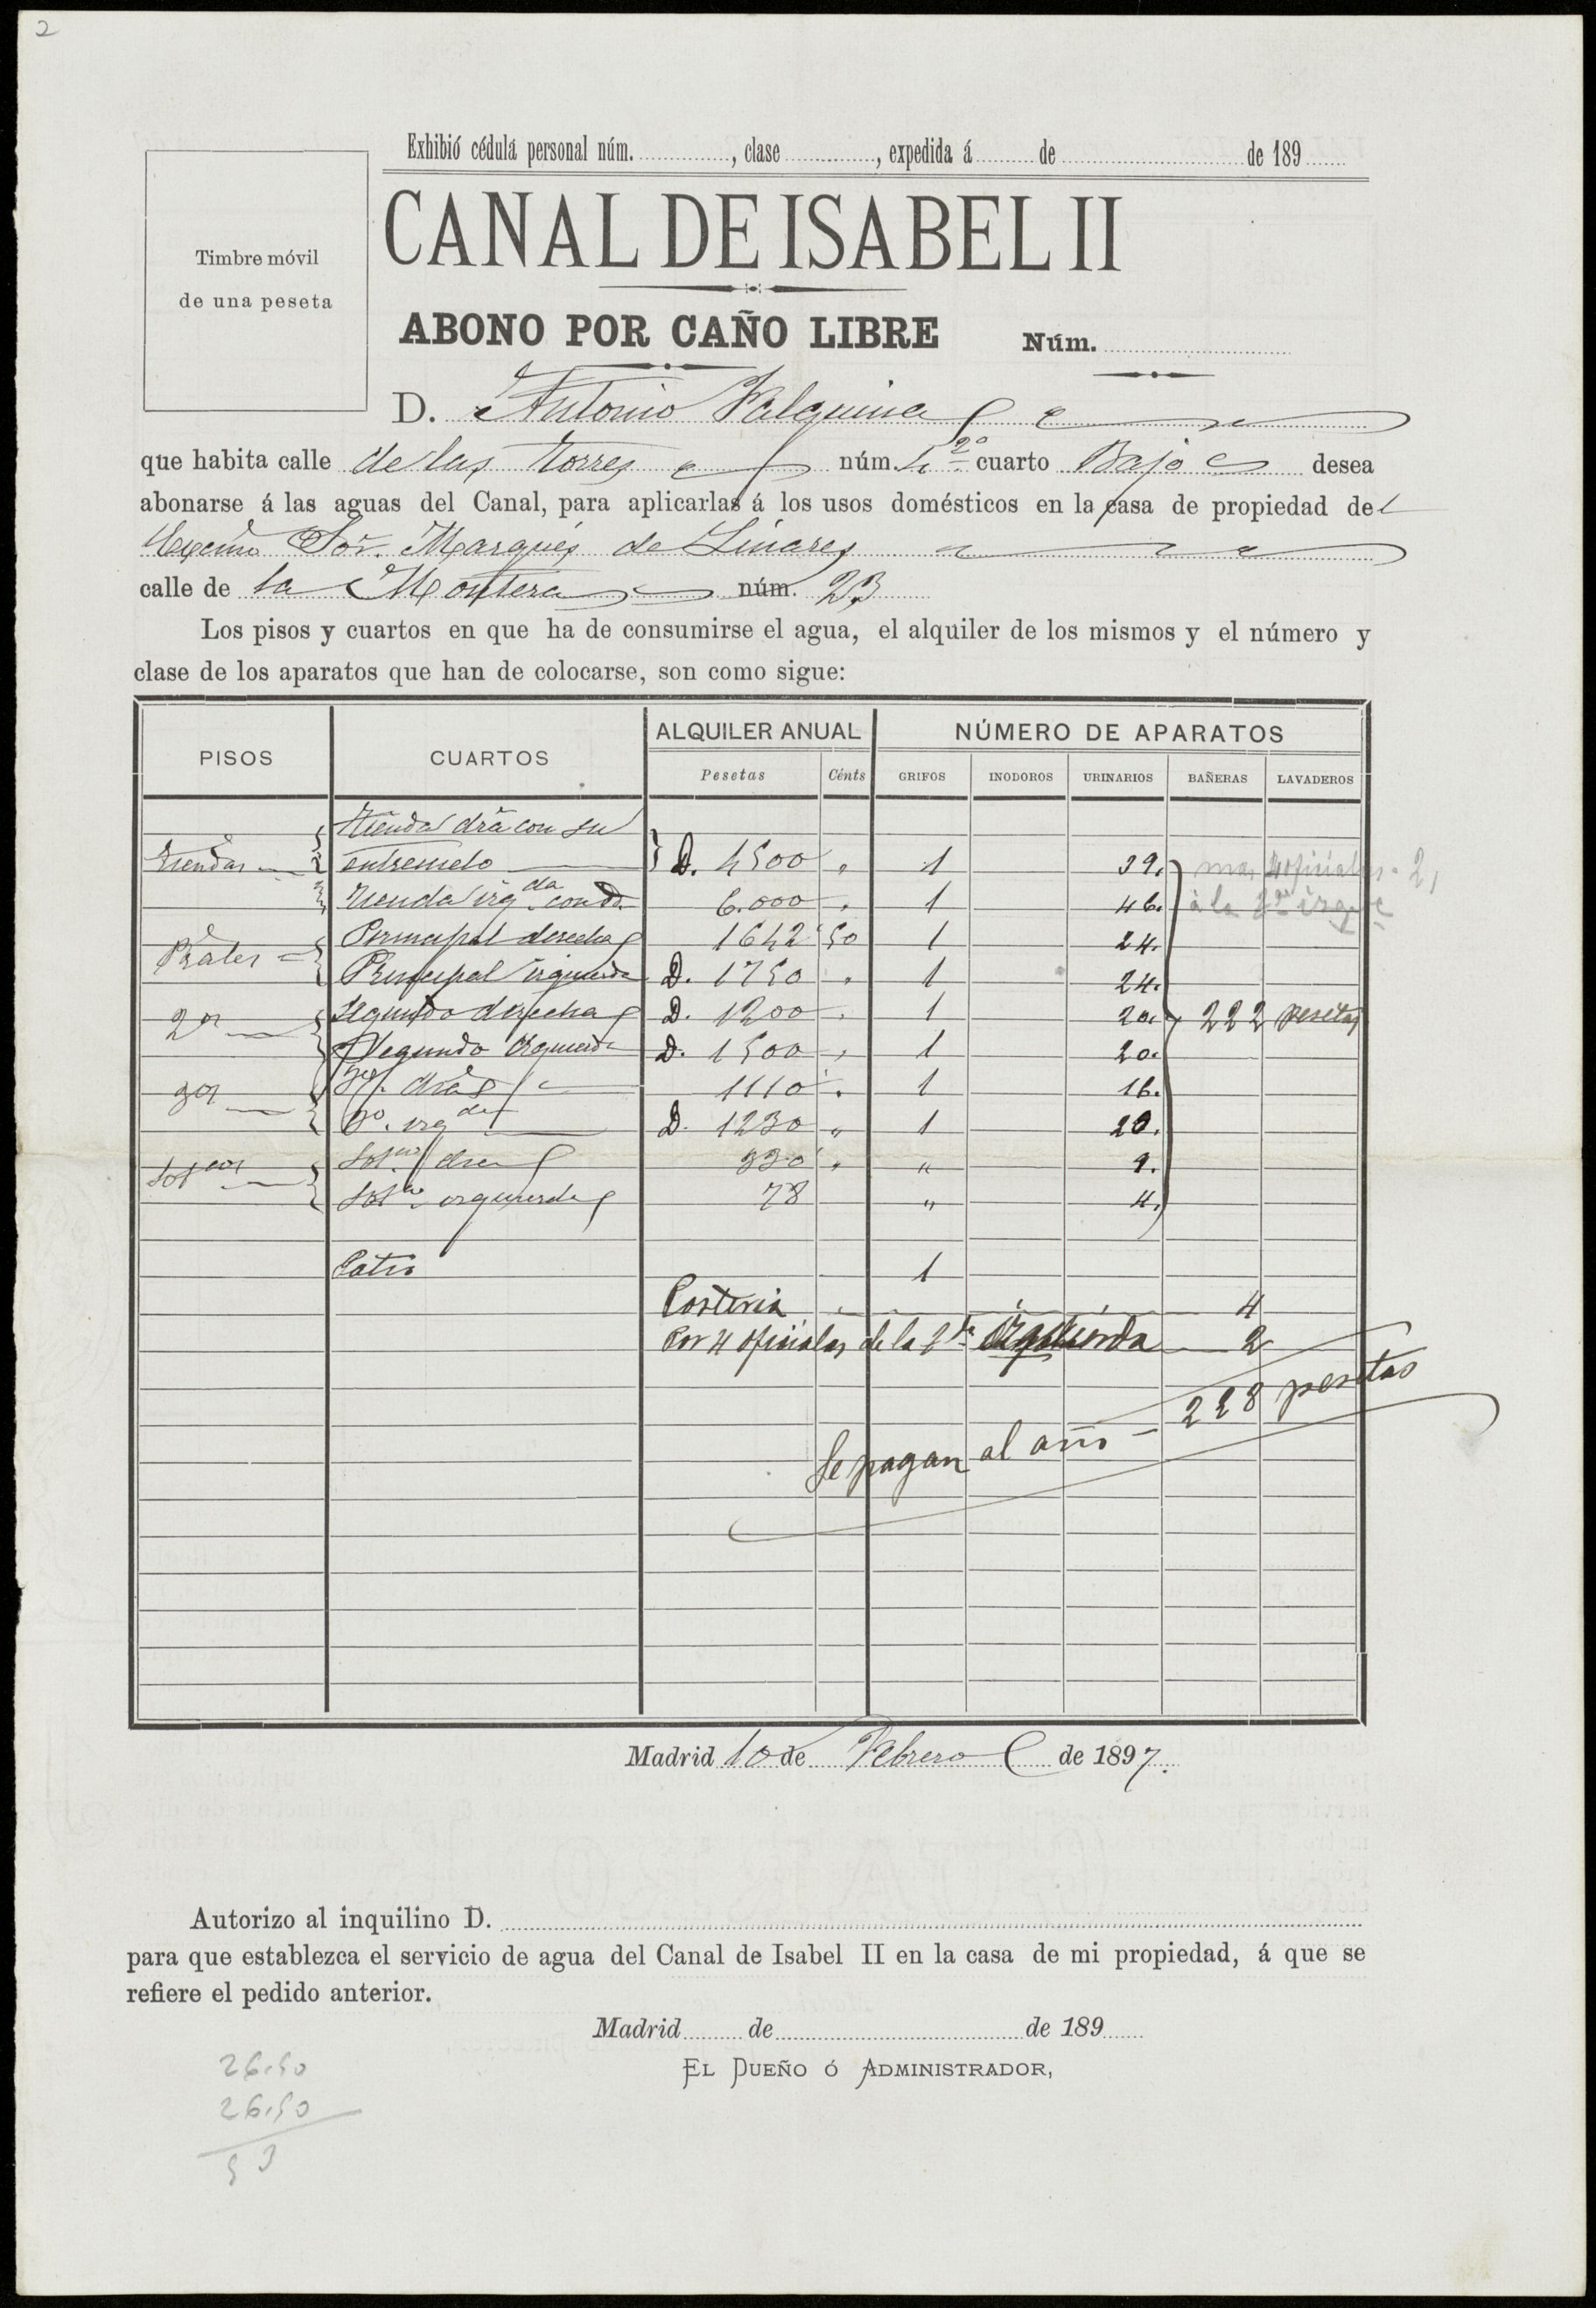 2
Exhibió cédula personal núm. , clase , expedida á de de 189
Timbre móvil
de una peseta
CANAL DE ISABEL II
ABONO POR CAÑO LIBRE Núm.
D. Antonio Falquina
que habita calle de las Torres núm. 4 2º cuarto Bajo desea
abonarse á las aguas del Canal, para aplicarlas á los usos domésticos en la casa de propiedad del
Excmo Sor. Marqués de Linares
calle de la Montera núm. 23
Los pisos y cuartos en que ha de consumirse el agua, el alquiler de los mismos y el número y
clase de los aparatos que han de colocarse, son como sigue:
PISOS CUARTOS ALQUILER ANUAL NÚMERO DE APARATOS
Pesetas Cénts GRIFOS INODOROS URINARIOS BAÑERAS LAVADEROS
Tienda dra con su
Tiendas entresuelo D. 4500 " 1 39.
Tienda izqda con id. 6.000 " 1 46. à la
Prales Principal derecha 1642 50 1 24.
Principal izquierda D. 1750 " 1 24.
2os Segundo derecha D. 1200 " 1 20. 222 pesetas
Segundo izquierda D. 1500 " 1 20.
3os 3o. dra 1110 " 1 16.
3o. izqda D. 1230 " 1 20.
Sotnos Sotno dra 330 " " 9.
Sotno izquierda 78 " 4.
Patio 1
Porteria 4
Por 4 oficiales de la 2da izquierda 2
Se pagan al año - 228 pesetas
Madrid 10 de Febrero de 1897.
Autorizo al inquilino D.
para que establezca el servicio de agua del Canal de Isabel II en la casa de mi propiedad, á que se
refiere el pedido anterior.
Madrid de de 189
EL DUEÑO Ó ADMINISTRADOR,
26.50
26.50
53